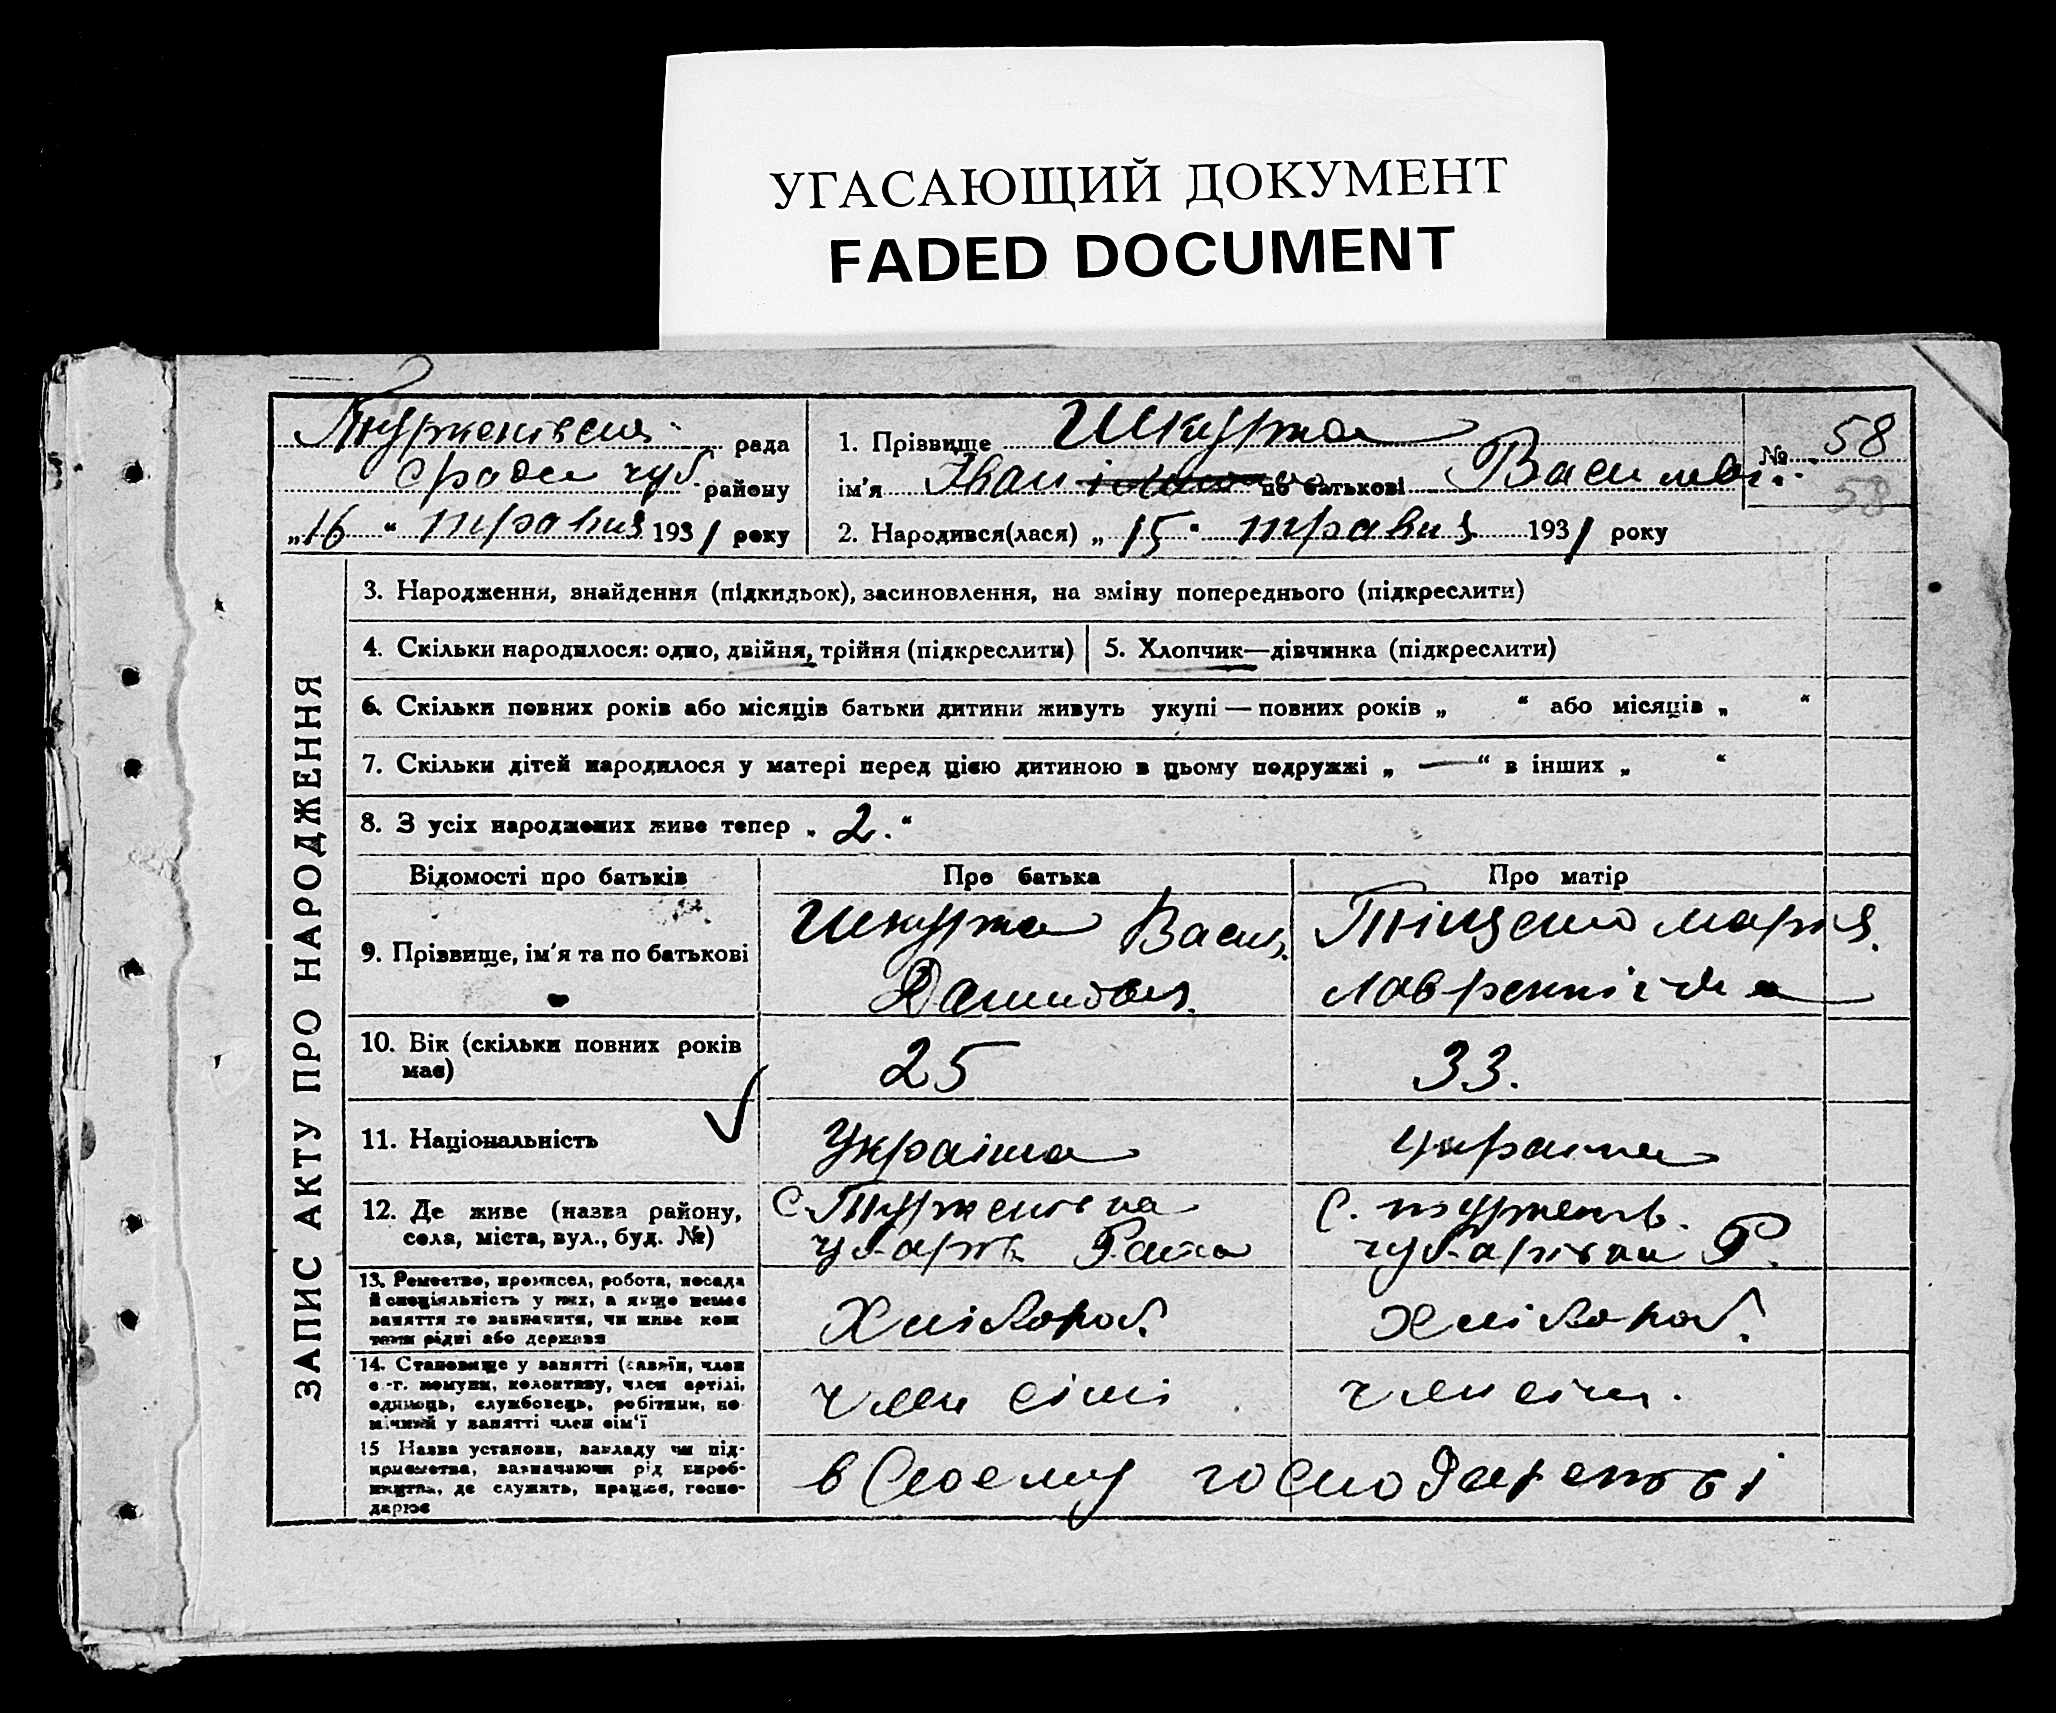 УГАСАЮЩИЙ ДОКУМЕНТ
FADED DOCUMENT
рада
району
„16“ травня 1931 року
1. Прізвище Шкурта
№ 58
58
ім'я Іван по батькові Василев.
2. Народився(лася) „15“ травня 1931 року
ЗАПИС АКТУ ПРО НАРОДЖЕННЯ
3. Народження, знайдення (підкидьок), засиновлення, на зміну попереднього (підкреслити)
4. Скільки народилося: одно, двійня, трійня (підкреслити)
5. Хлопчик—дівчинка (підкреслити)
6. Скільки повних років або місяців батьки дитини живуть укупі — повних років „ “ або місяців „ “
7. Скільки дітей народилося у матері перед цією дитиною в цьому подружжі „ — “ в інших „ “
8. З усіх народжених живе тепер „ 2. “
Відомості про батьків
Про батька
Про матір
9. Прізвище, ім'я та по батькові
Шкурта Васил.
Марія
10. Вік (скільки повних років
має)
25
33.
11. Національність
Україна
україна
12. Де живе (назва району,
села, міста, вул., буд. №)
С.
С.
Р.
13. Ремество, промисел, робота, посада
й спеціяльність у них, а якщо немає
заняття то зазначити, чи живе кош
тами рідні або держави
Хлібороб.
Хлібороб.
14. Становище у занятті (хазяїн, член
с.-г. комуни, колективу, член артілі,
одинець, службовець, робітник, по
мічний у занятті член сім'ї
член сімі
член сім.
15 Назва установи, закладу чи під-
приємства, зазначаючи рід вироб-
ництва, де служить, працює, госпо-
дарює
в своєму господарстві